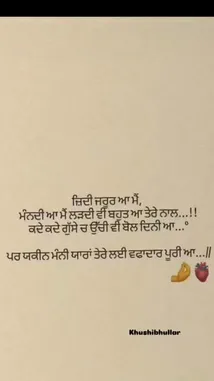 ਜ਼ਿਦੀ ਜਰੂਰ ਆ ਮੈਂ,
ਮੰਨਦੀ ਆ ਮੈਂ ਲੜਦੀ ਵੀ ਬਹੁਤ ਆ ਤੇਰੇ ਨਾਲ...!!
ਕਦੇ ਕਦੇ ਗੁੱਸੇ ਚ ਉੱਚੀ ਵੀ ਬੋਲ ਦਿਨੀ ਆ...°
ਪਰ ਯਕੀਨ ਮੰਨੀ ਯਾਰਾਂ ਤੇਰੇ ਲਈ ਵਫਾਦਾਰ ਪੂਰੀ ਆ...||
🤌🫀
Khushibhullar